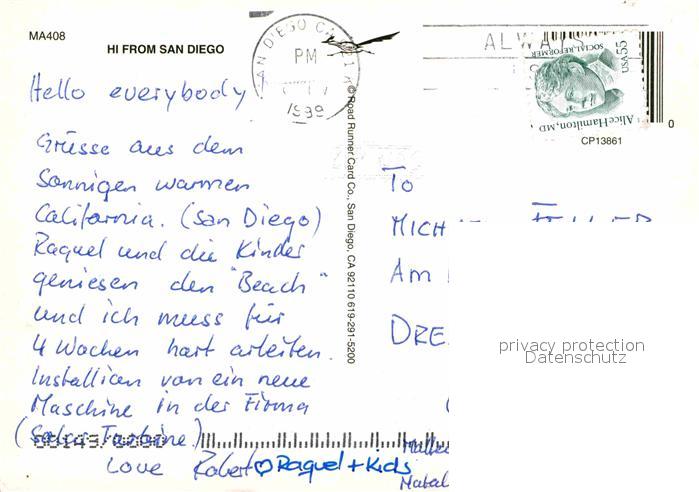 MA408
HI FROM SAN DIEGO
SAN DIEGO CA
PM
1999
ALWA
SOCIAL REFORMER
USA 55
Alice Hamilton, MD
CP13861
0
© Road Runner Card Co., San Diego, CA 92110 619-291-5200
Hello everybody
Grüsse aus dem
Sonnigen warmen
California. (San Diego)
Raquel und die Kinder
geniesen den "Beach"
und ich muss für
4 Wochen hart arbeiten.
Installieren von ein neue
Maschine in der Firma
(Solar Turbine.)
Love Robert ♡ Raquel + Kids
To
MICH
Am
DRE
privacy protection
Datenschutz